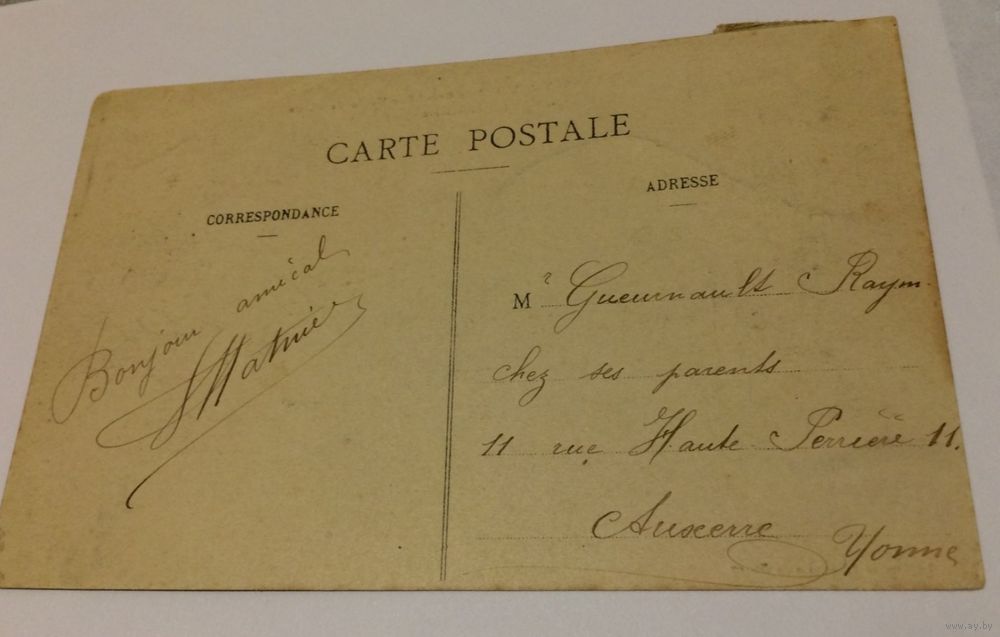 CARTE POSTALE
CORRESPONDANCE
Bonjour amical
ADRESSE
Mr Gueurnault Raym.
chez ses parents
11 rue Haute Perrière 11.
Auxerre Yonne
www.ay.by